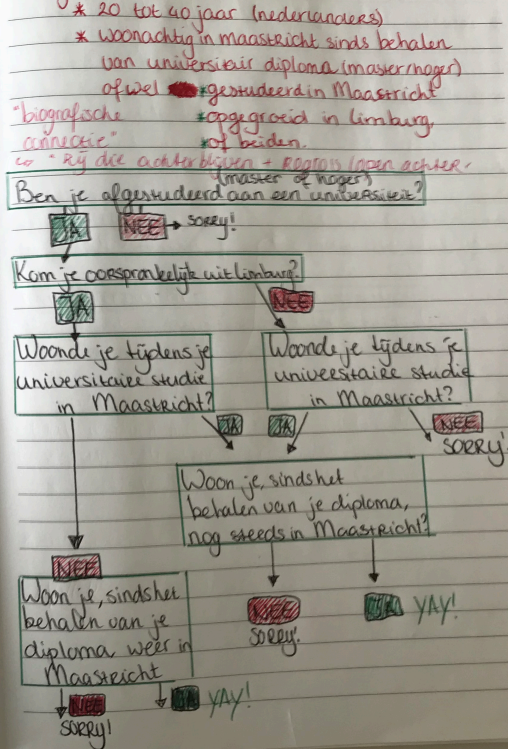 * 20 tot 40 jaar (nederlanders)
* woonachtig in maastricht sinds behalen
van universitair diploma (master/hoger)
ofwel * gestudeerd in Maastricht
"biografische * opgegroeid in limburg,
connectie" * of beiden.
"Zij die achterblijven + Regio's lopen achter.
(master of hoger)
Ben je afgestudeerd aan een universiteit?
JA NEE → SORRY!
Kom je oorspronkelijk uit limburg?
JA NEE
Woonde je tijdens je
universitaire studie
in Maastricht?
Woonde je tijdens je
universitaire studie
in Maastricht?
JA JA NEE
SORRY!
Woon je, sinds het
behalen van je diploma,
nog steeds in Maastricht?
NEE
Woon je, sinds het
behalen van je
diploma weer in
Maastricht
NEE
SORRY!
JA YAY!
NEE
SORRY!
JA YAY!